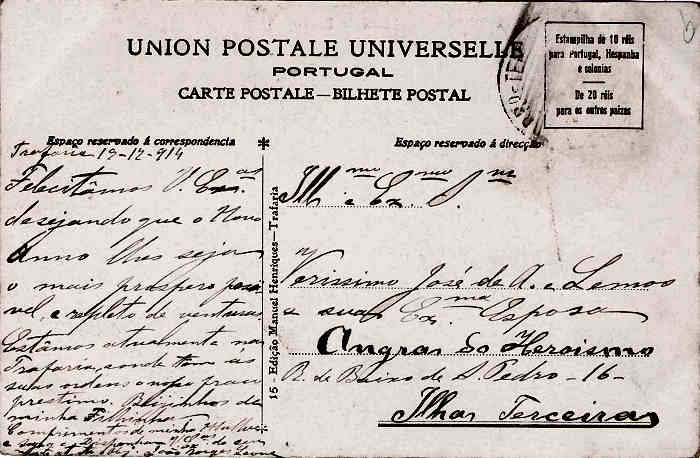 UNION POSTALE UNIVERSELLE
PORTUGAL
CARTE POSTALE — BILHETE POSTAL
Estampilha de 10 réis
para Portugal, Hespanha
e colonias
De 20 réis
para os outros paizes
Espaço reservado á correspondencia
Trafaria 19-12-914
Felecitâmos V. Ex.as
desejando que o Novo
Anno lhes seja
o mais prospero possi
vel, e repleto de venturas
Estâmos atualmente na
Trafaria, onde tem ás
suas ordens o nosso fraco
prestimo. Beijinhos de
minha Filhinha
Comprimentos de minha Mulher
João Borges
15 - Edição Manuel Henriques — Trafaria
Espaço reservado á direcção
Ill.mo e Ex.mo S.nr
Verissimo José de A. e Lemos
e sua Ex.ma Esposa
Angra do Heroismo
R. de Baixo de S. Pedro - 16 -
Ilha Terceira